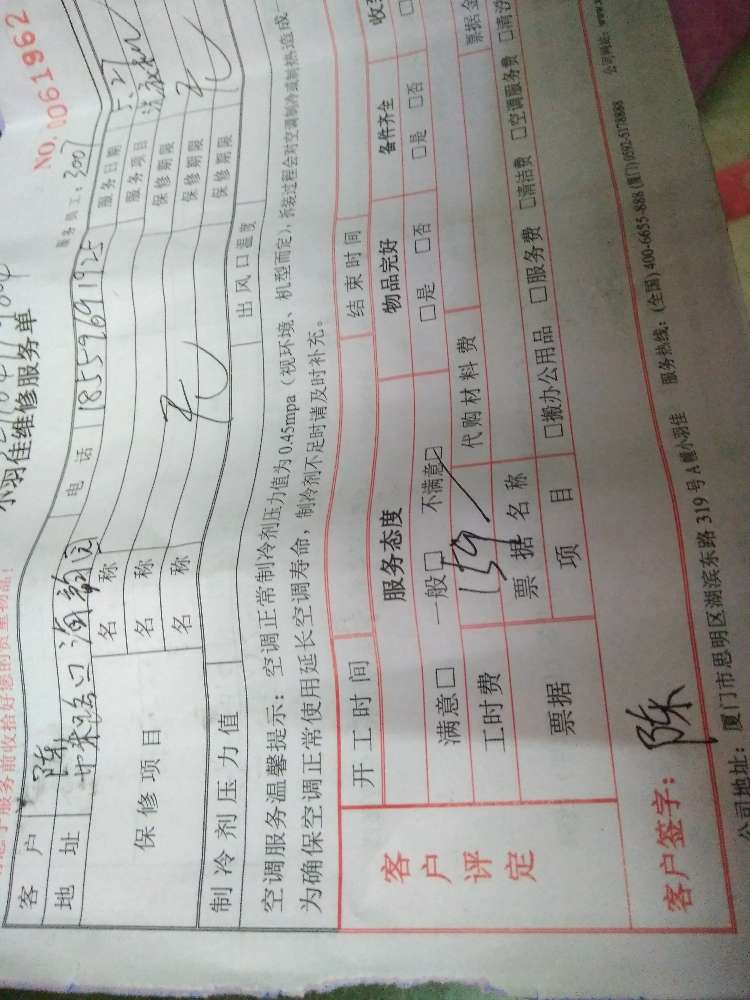 小羽佳维修服务单
NO. 0061962
服务员工：3007
客户 陈 电话 18559691925 服务日期
地址 服务项目
保修项目 名称 保修期限
名称 保修期限
名称 保修期限
制冷剂压力值 出风口温度
空调服务温馨提示：空调正常制冷剂压力值为0.45mpa（视环境、机型而定），拆装过程会对空调制冷或制热造成
为确保空调正常使用延长空调寿命，制冷剂不足时请及时补充。
开工时间 结束时间
客户评定 服务态度 物品完好 备件齐全
满意□ 一般□ 不满意□ □是 □否 □是 □否
工时费 159 代购材料费
票据 票据名称 票据金
项目 □搬办公用品 □服务费 □清洁费 □空调服务费
客户签字：陈
公司地址：厦门市思明区湖滨东路319号A幢小羽佳 服务热线：(全国)400-6655-888 (厦门)0592-5178888 公司网站：